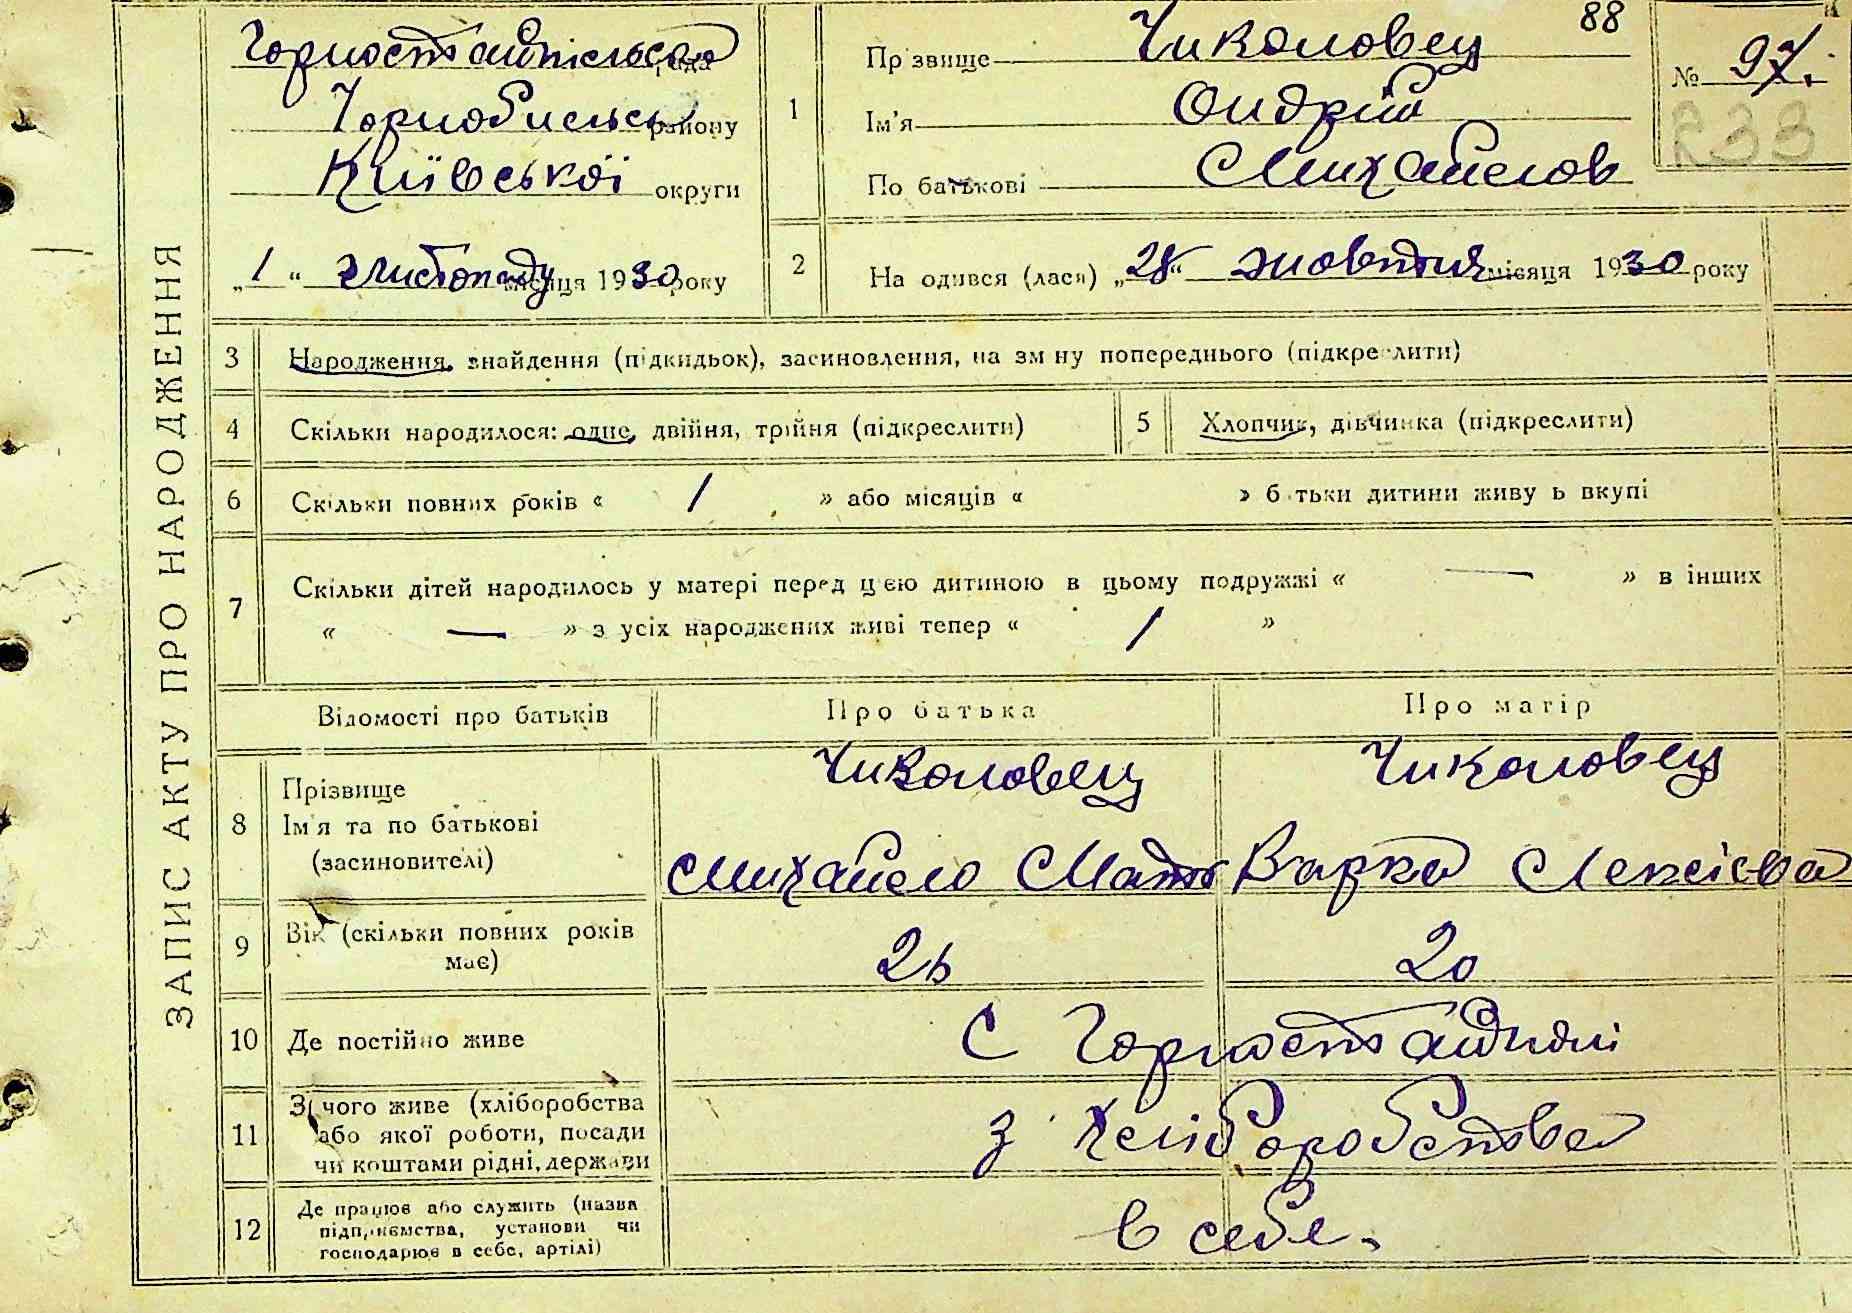 88
ЗАПИС АКТУ ПРО НАРОДЖЕННЯ
Горностайпільська рада
Чорнобильськ району
Київської округи
„1“ листопаду місяця 1930 року
1
Пр звище Чиколовец
Ім'я Андрій
По батькові Михайлов
№ 97.
R33
2
На одився (лася) „28“ жовтня місяця 1930 року
3 Народження, знайдення (підкидьок), засиновлення, на зм ну попереднього (підкреслити)
4 Скільки народилося: одне, двійня, трійня (підкреслити)
5 Хлопчик, дівчинка (підкреслити)
6 Скільки повних років « 1 » або місяців « » б тьки дитини живу ь вкупі
7 Скільки дітей народилось у матері перед цією дитиною в цьому подружжі « — » в інших
« — » з усіх народжених живі тепер « 1 »
Відомості про батьків Про батька Про матір
8 Прізвище
Ім'я та по батькові
(засиновителі)
Чиколовец Чиколовец
Михайло Матв Варка Лексієва
9 Вік (скільки повних років
має)
20
10 Де постійно живе С Горностайполі
11 З чого живе (хліборобства
або якої роботи, посади
чи коштами рідні, держави
з хліборобства
12 Де працює або служить (назва
підприємства, установи чи
господарює в себе, артілі)
в себе.